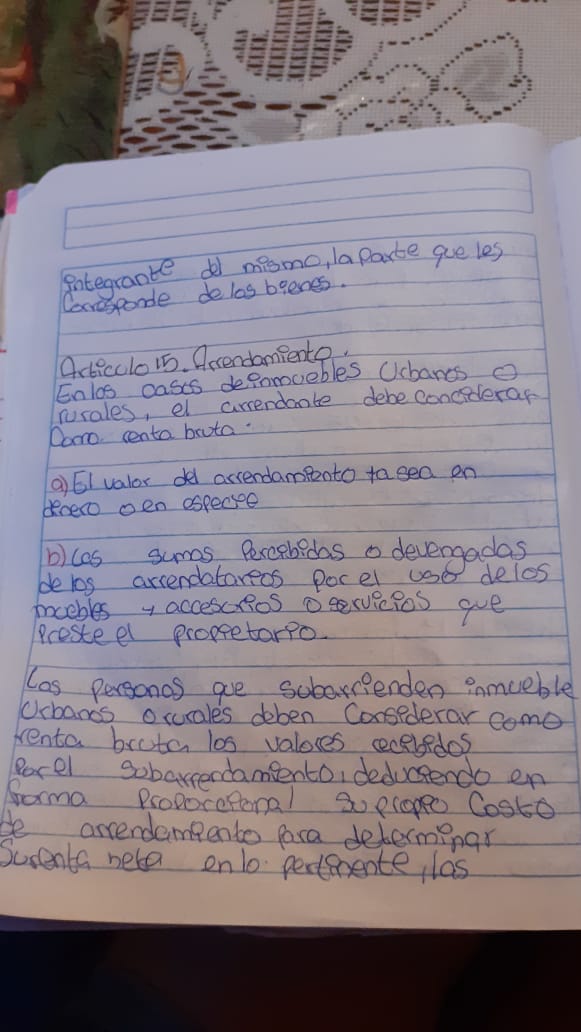 integrante del mismo, la parte que les
Corresponde de los bienes.
Articulo 15. Arrendamiento.
En los casos de inmuebles Urbanos o
rurales, el arrendante debe considerar
Como renta bruta.
a) El valor del arrendamiento ya sea en
dinero o en especie
b) Las sumas Percibidas o devengadas
de los arrendatarios por el uso de los
muebles y accesorios o servicios que
Preste el propietario.
Las personas que subarrienden inmueble
Urbanos o rurales deben Considerar como
renta bruta los valores recibidos
Por el subarrendamiento, deduciendo en
forma Proporcional su propio Costo
de arrendamiento para determinar
Su renta neta en lo pertinente, las